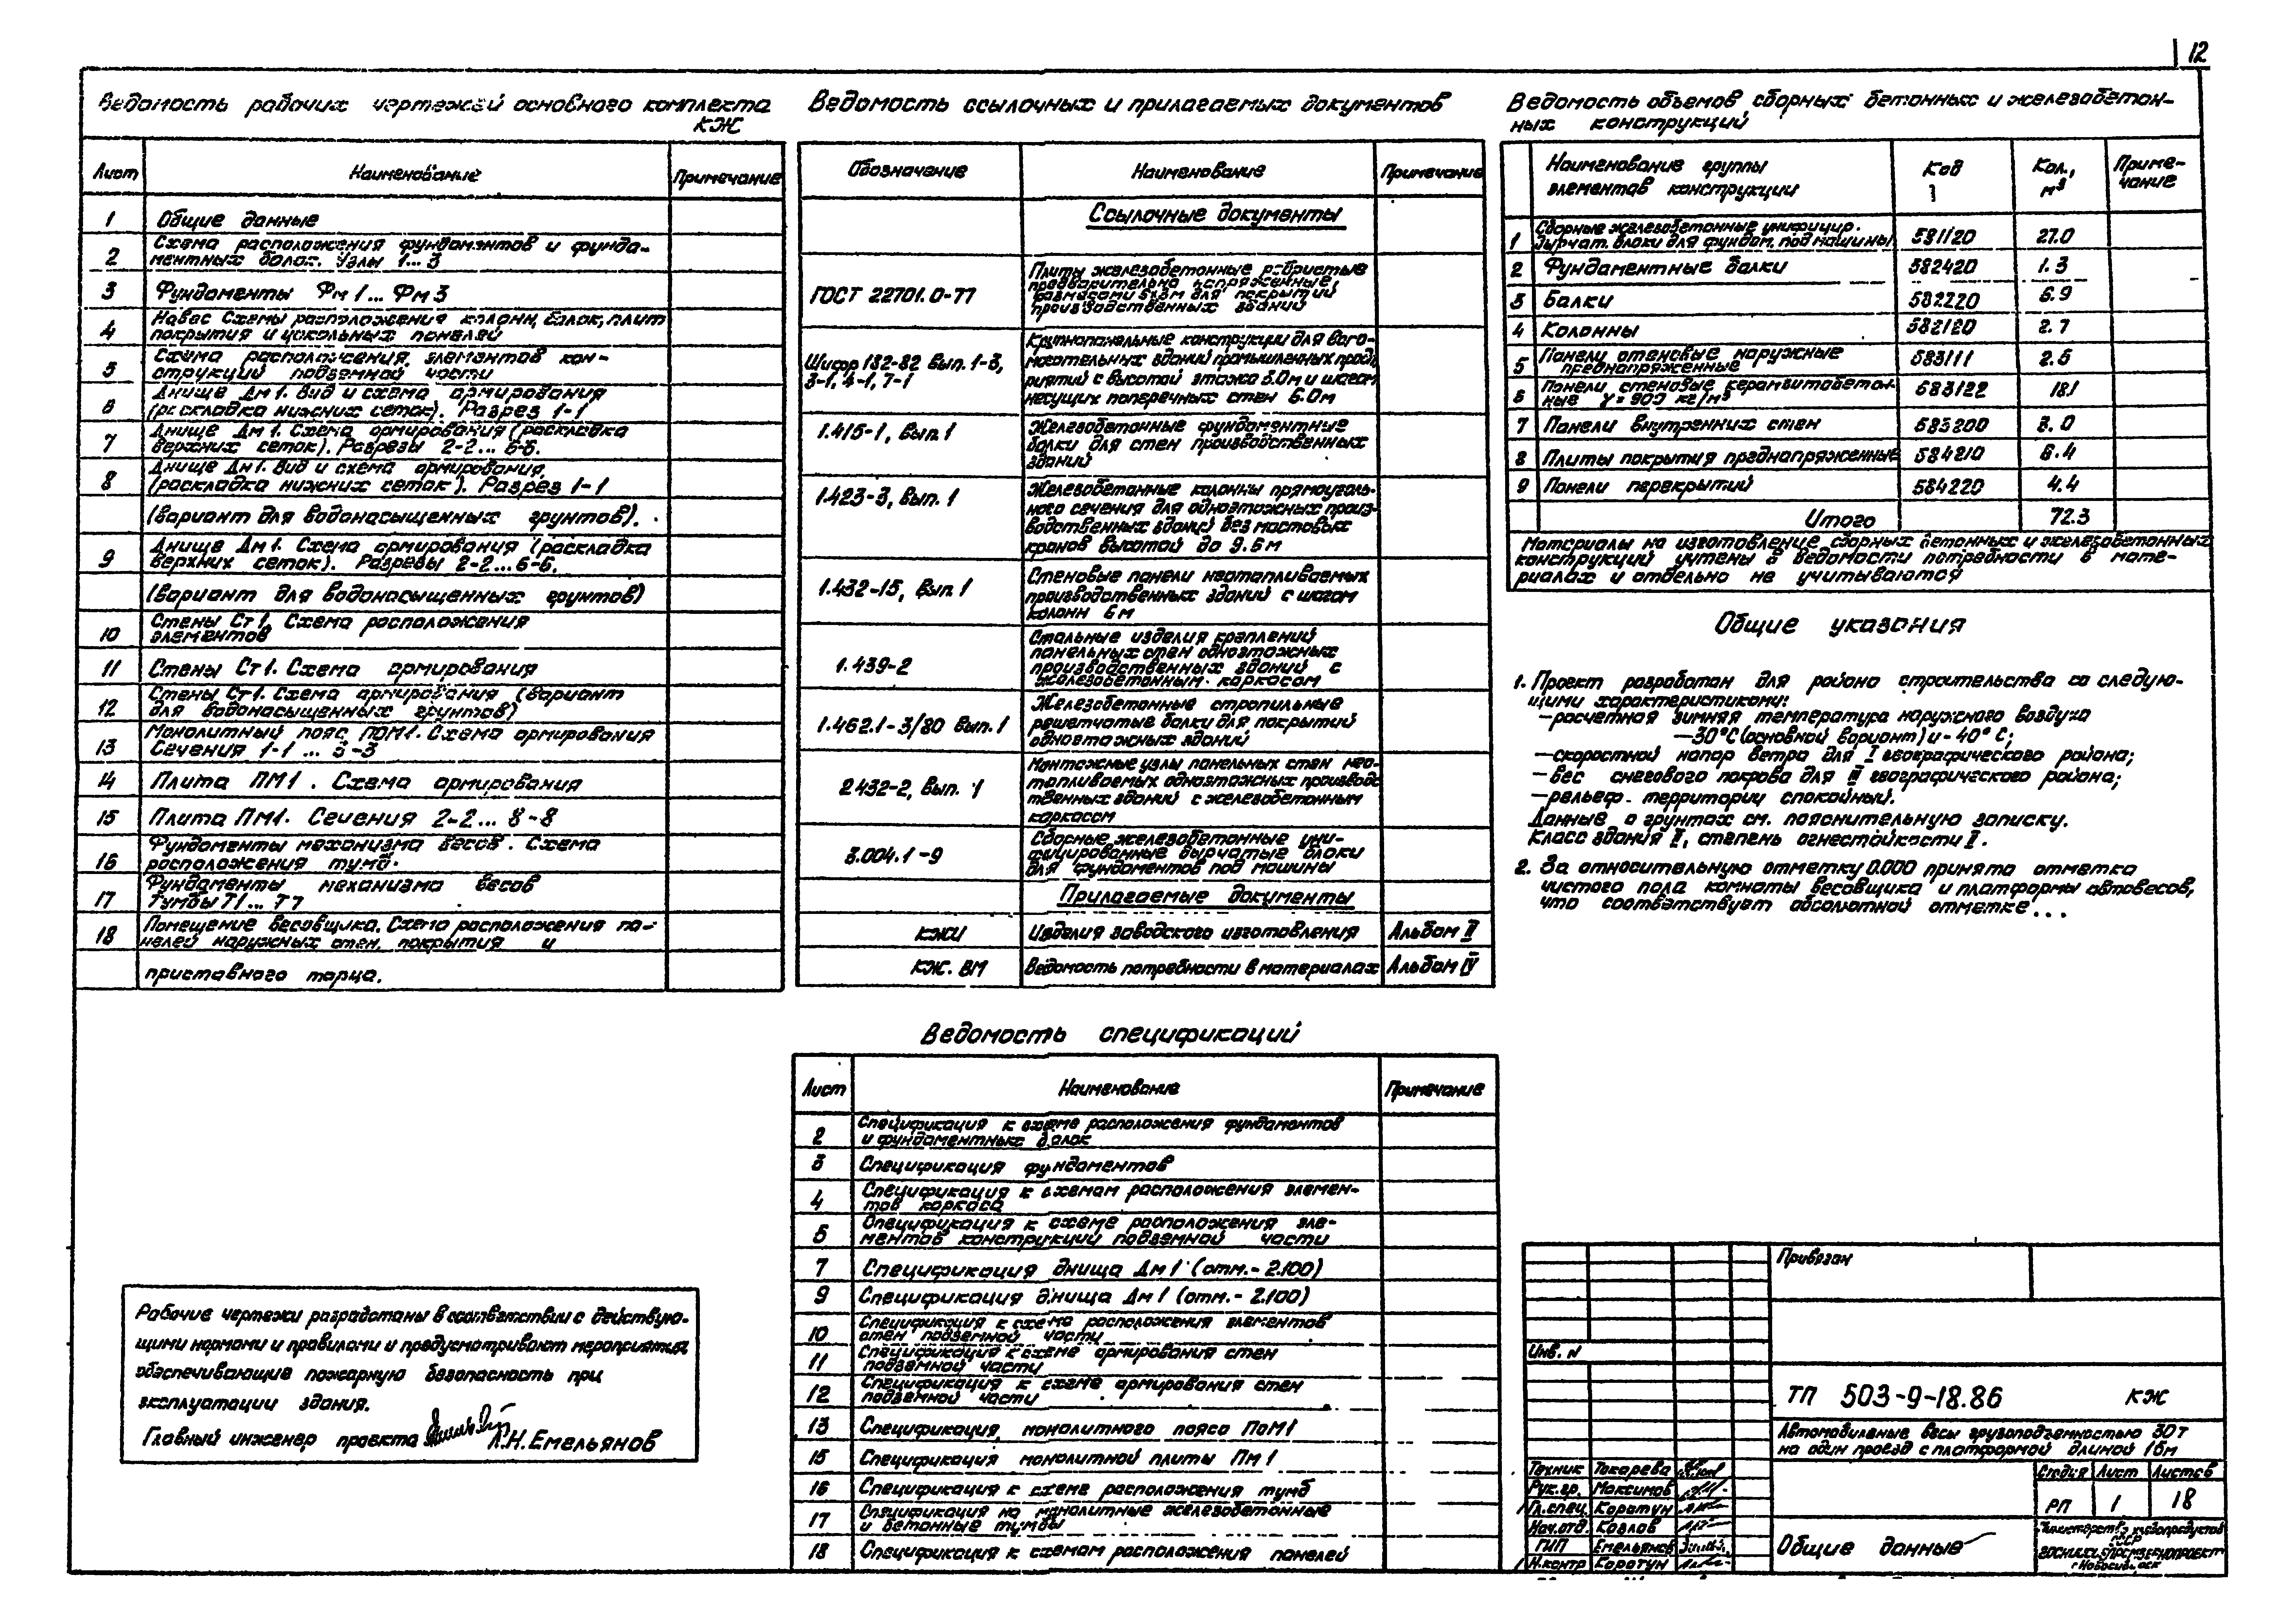 12
Ведомость рабочих чертежей основного комплекта
КЖ
Лист
Наименование
Примечание
1 Общие данные
Схема расположения фундаментов и фунда-
2 ментных балок. Узлы 1...3
3 Фундаменты Фм1...Фм3
Навес Схемы расположения колонн, балок, плит
4 покрытия и цокольных панелей
Схема расположения элементов кон-
5 струкций подземной части
Днище Дм1. Вид и схема армирования
6 (раскладка нижних сеток). Разрез 1-1
Днище Дм1. Схема армирования (раскладка
7 верхних сеток). Разрезы 2-2...6-6.
Днище Дм1. Вид и схема армирования,
8 (раскладка нижних сеток). Разрез 1-1
(вариант для водонасыщенных грунтов).
Днище Дм1. Схема армирования (раскладка
9 верхних сеток). Разрезы 2-2...6-6.
(вариант для водонасыщенных грунтов)
Стены Ст1. Схема расположения
10 элементов
11 Стены Ст1. Схема армирования
Стены Ст1. Схема армирования (вариант
12 для водонасыщенных грунтов)
Монолитный пояс ПОМ1. Схема армирования
13 Сечения 1-1 ... 3-3
14 Плита ПМ1. Схема армирования
15 Плита ПМ1. Сечения 2-2...8-8
Фундаменты механизма весов. Схема
16 расположения тумб.
Фундаменты механизма весов
17 Тумбы Т1...Т7
Помещение весовщика. Схема расположения па-
18 нелей наружных стен, покрытия и
приставного торца.
Ведомость ссылочных и прилагаемых документов
Обозначение
Наименование
Примечание
Ссылочные документы
Плиты железобетонные ребристые
предварительно напряженные
ГОСТ 22701.0-77
размерами 6х3м для покрытий
производственных зданий
Крупнопанельные конструкции для вспо-
Шифр 132-82 Вып. 1-3,
могательных зданий промышленных пред-
3-1, 4-1, 7-1
риятий с высотой этажа 3.0м и шагом
несущих поперечных стен 6.0м
1.415-1, Вып.1
Железобетонные фундаментные
балки для стен производственных
зданий
1.423-3, Вып. 1
Железобетонные колонны прямоуголь-
ного сечения для одноэтажных произ-
водственных зданий без мостовых
кранов высотой до 9.6м
1.432-15, Вып. 1
Стеновые панели неотапливаемых
производственных зданий с шагом
колонн 6м
1.439-2
Стальные изделия креплений
панельных стен одноэтажных
производственных зданий с
железобетонным каркасом
1.462.1-3/80 Вып.1
Железобетонные стропильные
решетчатые балки для покрытий
одноэтажных зданий
2.432-2, Вып. 1
Монтажные узлы панельных стен нео-
тапливаемых одноэтажных производс
твенных зданий с железобетонным
каркасом
3.004.1-9
Сборные железобетонные уни-
фицированные дырчатые блоки
для фундаментов под машины
Прилагаемые документы
КЖИ Изделия заводского изготовления Альбом II
КЖ. ВМ Ведомость потребности в материалах Альбом IV
Ведомость объемов сборных бетонных и железобетон-
ных конструкций
Наименование группы
элементов конструкции
Код
Кол., м³
Приме-
чание
Сборные железобетонные унифицир.
1 дырчат. блоки для фундам. под машины 581120 27.0
2 Фундаментные балки 582420 1.3
3 Балки 582220 6.9
4 Колонны 582120 2.7
5 Панели стеновые наружные преднапряженные 583111 2.5
Панели стеновые керамзитобетон-
6 ные γ=900 кг/м³ 583122 18.1
7 Панели внутренних стен 583200 3.0
8 Плиты покрытия преднапряженные 584210 6.4
9 Панели перекрытий 584220 4.4
Итого 72.3
Материалы на изготовление сборных бетонных и железобетонных
конструкций учтены в ведомости потребности в мате-
риалах и отдельно не учитываются
Общие указания
1. Проект разработан для района строительства со следую-
щими характеристиками:
—расчетная зимняя температура наружного воздуха
—30°С (основной вариант) и -40°С;
—скоростной напор ветра для I географического района;
—вес снегового покрова для III географического района;
—рельеф территории спокойный.
Данные о грунтах см. пояснительную записку.
Класс здания II, степень огнестойкости II.
2. За относительную отметку 0.000 принята отметка
чистого пола комнаты весовщика и платформы автовесов,
что соответствует абсолютной отметке...
Ведомость спецификаций
Лист
Наименование
Примечание
Спецификация к схеме расположения фундаментов
2 и фундаментных балок
3 Спецификация фундаментов
Спецификация к схемам расположения элемен-
4 тов каркаса
Спецификация к схеме расположения эле-
5 ментов конструкций подземной части
7 Спецификация днища Дм1 (отм.-2.100)
9 Спецификация днища Дм1 (отм.-2.100)
Спецификация к схеме расположения элементов
10 стен подземной части
Спецификация к схеме армирования стен
11 подземной части
Спецификация к схеме армирования стен
12 подземной части
13 Спецификация монолитного пояса ПоМ1
15 Спецификация монолитной плиты Пм1
16 Спецификация к схеме расположения тумб
Спецификация на монолитные железобетонные
17 и бетонные тумбы
18 Спецификация к схемам расположения панелей
Рабочие чертежи разработаны в соответствии с действую-
щими нормами и правилами и предусматривают мероприятия
обеспечивающие пожарную безопасность при
эксплуатации здания.
Главный инженер проекта Л.Н.Емельянов
Привязан
Инв. N
ТП 503-9-18.86 КЖ
Автомобильные весы грузоподъемностью 30т
на один проезд с платформой длиной 15м
Техник Токарева
Рук.гр. Максимов
Гл.спец. Коротун
Нач.отд. Козлов
ГИП Емельянов
Н.контр Коротун
Стадия Лист Листов
РП 1 18
Общие данные
Министерство хлебопродуктов
СССР
г.Новосибирск